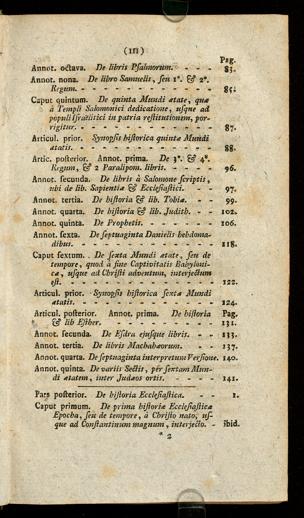 (III)
Pag.
Annot. octava. De libris Psalmorum. - - - 83.
Annot. nona. De libro Samuelis, seu 1°. & 2°.
Regum. - - - - - - - - - - 85.
Caput quintum. De quinta Mundi ætate, quæ
à Templi Salomonici dedicatione, usque ad
populi Israëlitici in patria restitutionem, por-
rigitur. - - - - - - - - - - 87.
Articul. prior. Synopsis historica quintæ Mundi
ætatis. - - - - - - - - - - 88.
Artic. posterior. Annot. prima. De 3°. & 4°.
Regum, & 2 Paralipom. libris. - - - - 96.
Annot. secunda. De libris à Salomone scriptis,
ubi de lib. Sapientiæ & Ecclesiastici. - - 97.
Annot. tertia. De historia & lib. Tobiæ. - - 99.
Annot. quarta. De historia & lib. Judith. - - 102.
Annot. quinta. De Prophetis. - - - - - 106.
Annot. sexta. De septuaginta Danielis hebdoma-
dibus. - - - - - - - - - - 118.
Caput sextum. De sexta Mundi ætate, seu de
tempore, quod à sine Captivitatis Babyloni-
cæ, usque ad Christi adventum, interjectum
est. - - - - - - - - - - 122.
Articul. prior. Synopsis historica sextæ Mundi
ætatis. - - - - - - - - - - 124.
Articul. posterior. Annot. prima. De historia Pag.
& lib Esther. - - - - - - - - 131.
Annot. secunda. De Esdra ejusque libris. - - 133.
Annot. tertia. De libris Machabæorum. - - - 137.
Annot. quarta. De septuaginta interpretum Versione. 140.
Annot. quinta. De variis Sectis, per sextam Mun-
di ætatem, inter Judæos ortis. - - - - 141.
Pars posterior. De historia Ecclesiastica. - - 1.
Caput primum. De prima historiæ Ecclesiasticæ
Epocha, seu de tempore, à Christo nato, us-
que ad Constantinum magnum, interjecto. - ibid.
* 2